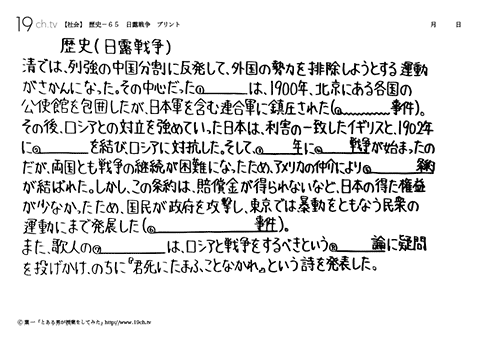 19ch.tv 【社会】 歴史－65 日露戦争 プリント 月 日
歴史(日露戦争)
清では、列強の中国分割に反発して、外国の勢力を排除しようとする運動
がさかんになった。その中心だった◎______は、1900年、北京にある各国の
公使館を包囲したが、日本軍を含む連合軍に鎮圧された(◎______事件)。
その後、ロシアとの対立を強めていった日本は、利害の一致したイギリスと、1902年
に◎______を結び、ロシアに対抗した。そして、◎____年に◎____戦争が始まったの
だが、両国とも戦争の継続が困難になったため、アメリカの仲介により◎______条約
が結ばれた。しかし、この条約は、賠償金が得られないなど、日本の得た権益
が少なかったため、国民が政府を攻撃し、東京では暴動をともなう民衆の
運動にまで発展した(◎______事件)。
また、歌人の◎______は、ロシアと戦争をするべきという◎____論に疑問
を投げかけ、のちに『君死にたまふことなかれ』という詩を発表した。
© 葉一「とある男が授業をしてみた」http://www.19ch.tv